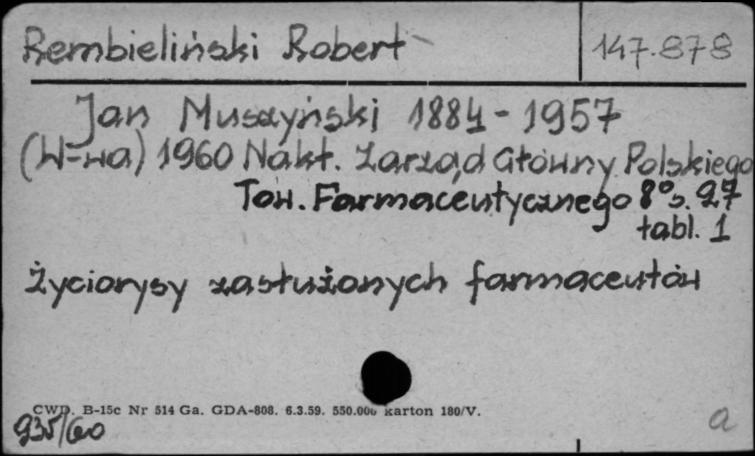 Rembieliński Robert
147.878
Jan Muszyński 1884-1957
(W-wa) 1960 Nakł. Zarząd Główny Polskiego
Tow. Farmaceutycznego 8° s. 27
tabl. 1
Życiorysy zasłużonych farmaceutów
CWD. B-15c Nr 514 Ga. GDA-808. 6.3.59. 550.000 karton 180/V.
935/60
a